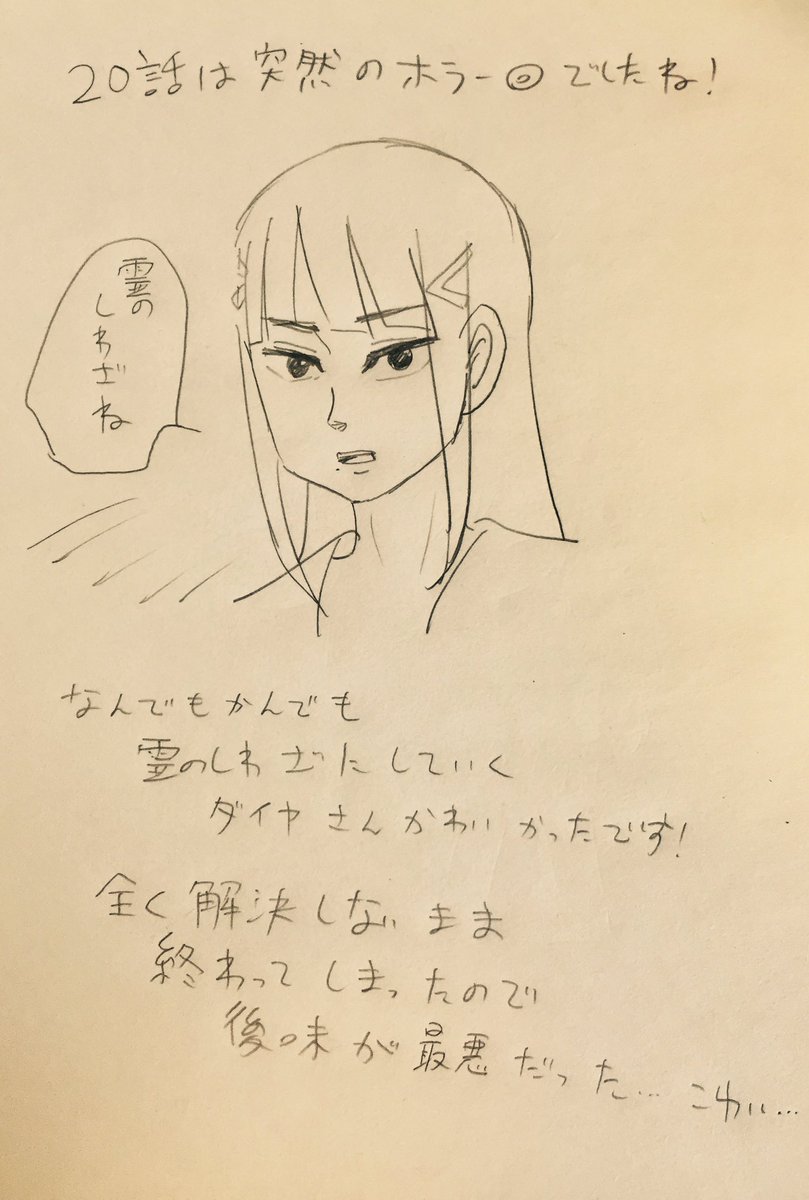 20話は突然のホラー回でしたね!
霊の
しわざね
なんでもかんでも
霊のしわざにしていく
ダイヤさんかわいかったです!
全く解決しないまま
終わってしまったので
後味が最悪だった… こわい…